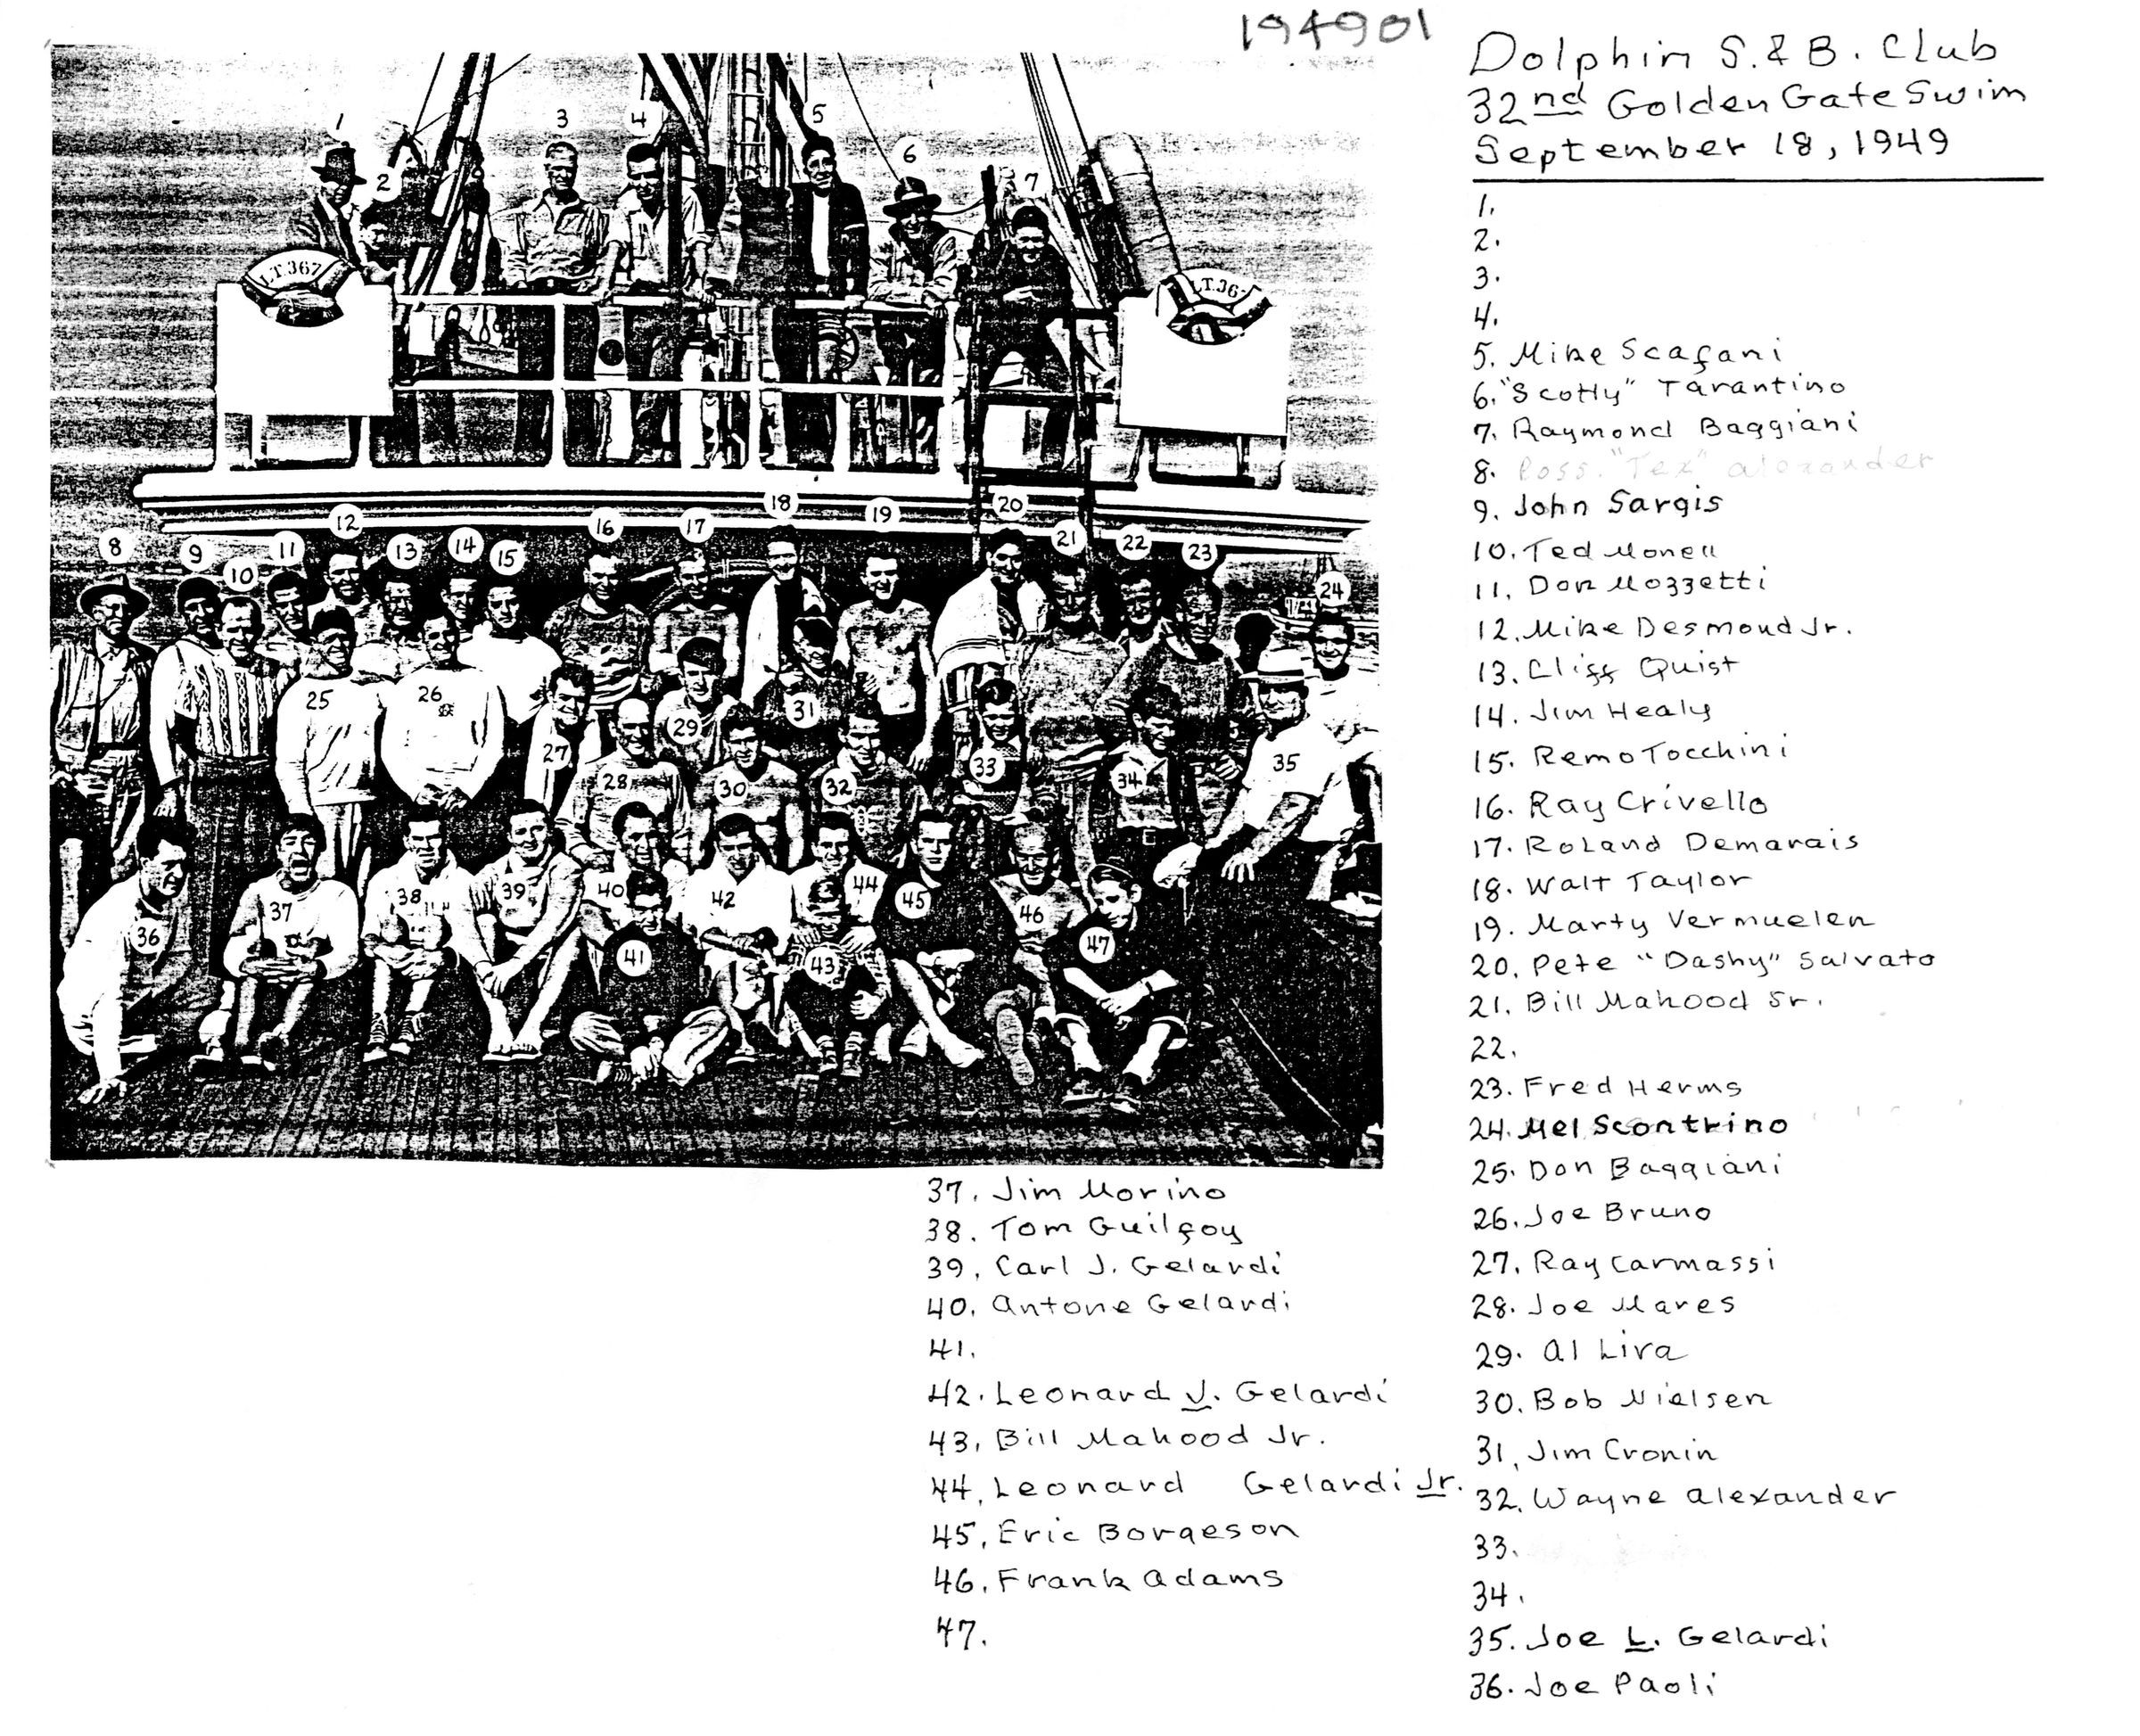 194901
Dolphin S. & B. Club
32nd Golden Gate Swim
September 18, 1949
1.
2.
3.
4.
5. Mike Scafani
6. "Scotty" Tarantino
7. Raymond Baggiani
8. Poss. "Tex" alexander
9. John Sargis
10. Ted Monell
11. Don Mozzetti
12. Mike Desmond Jr.
13. Cliff Quist
14. Jim Healy
15. Remo Tocchini
16. Ray Crivello
17. Roland Demarais
18. Walt Taylor
19. Marty Vermuelen
20. Pete "Dashy" Salvato
21. Bill Mahood Sr.
22.
23. Fred Herms
24. Mel Scontrino
25. Don Baggiani
26. Joe Bruno
27. Ray Carmassi
28. Joe Mares
29. Al Lira
30. Bob Nielsen
31. Jim Cronin
32. Wayne Alexander
33.
34.
35. Joe L. Gelardi
36. Joe Paoli
37. Jim Morino
38. Tom Guilfoy
39. Carl J. Gelardi
40. Antone Gelardi
41.
42. Leonard J. Gelardi
43. Bill Mahood Jr.
44. Leonard Gelardi Jr.
45. Eric Borgeson
46. Frank Adams
47.
1
2
3
4
5
6
7
LT. 367
LT. 36
8
9
10
11
12
13
14
15
16
17
18
19
20
21
22
23
24
25
26
27
28
29
30
31
32
33
34
35
36
37
38
39
40
41
42
43
44
45
46
47